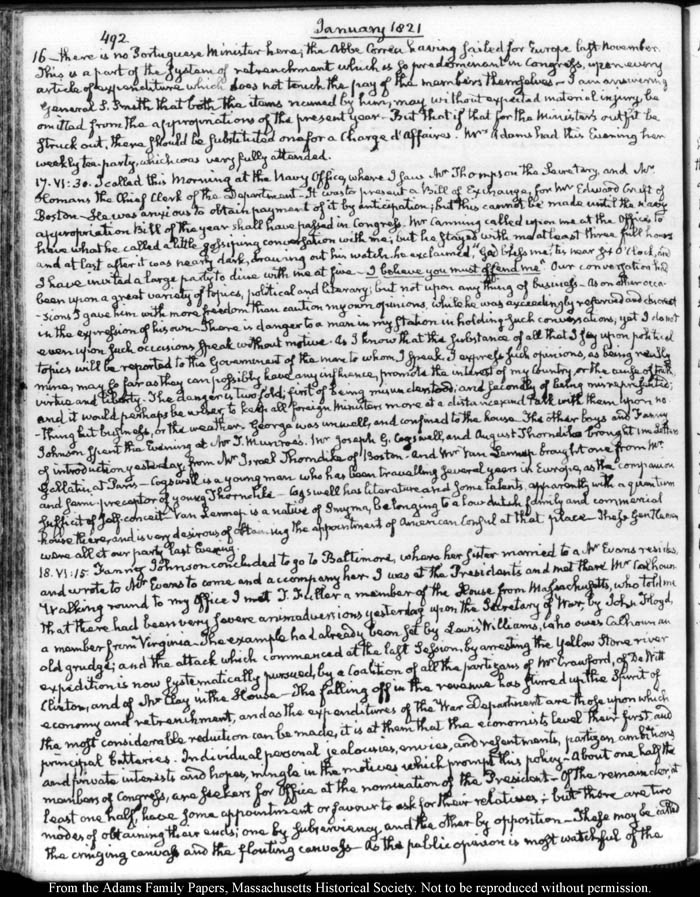 492
January 1821
16 — there is no Portuguese Minister here; the Abbe Correa having sailed for Europe last November.
This is a part of the System of retrenchment which is so predominant in Congress, upon every
article of expenditure which does not touch the pay of the members themselves — I am answering
General S. Smith that both the items named by him, may without expected material injury be
omitted from the appropriations of the present year — But that if that for the Minister's outfit be
struck out, there should be substituted one for a Chargé d'Affaires. Mrs Adams had this Evening her
weekly tea-party, which was very fully attended.
17. VI:30. I called this Morning at the Navy Office, where I saw Mr Thompson the Secretary, and Mr
Homans the Chief Clerk of the Department — It was to present a Bill of Exchange, for Mr Edward Cruft of
Boston — He was anxious to obtain payment of it by anticipation; but this cannot be made until the Navy
appropriation Bill of the year shall have passed in Congress. Mr Canning called upon me at the Office to
have what he called a little gossiping conversation with me; but he stayed with me at least three full hours
and at last after it was nearly dark, drawing out his watch he exclaimed, "God bless me, tis near 5 O'Clock, and
I have invited a large party to dine with me at five — I believe you must offend me" Our conversation had
been upon a great variety of topics, political and literary; but not upon any thing of business — As on other occa-
-sions I gave him with more freedom than caution my own opinions, while he was exceedingly reserved and discreet
in the expression of his own — There is danger to a man in my Station in holding such conversations, yet I do not
even upon such occasions speak without motive. As I know that the substance of all that I say upon political
topics will be reported to the Government of the man to whom I speak, I express such opinions, as being really
mine, may so far as they can possibly have any influence, promote the interest of my Country, or the cause of truth
virtue and liberty. The danger is two fold; first of being misunderstood; and secondly of being misrepresented;
and it would perhaps be wiser, to keep all foreign Ministers more at a distance, and talk with them upon no-
-thing but business, or the weather. George was unwell, and confined to the house. The other boys and Fanny
Johnson spent the Evening at Mr T. Munroe's. Mr Joseph G. Cogswell, and August Thorndike brought me Letters
of introduction yesterday, from Mr Israel Thorndike of Boston. And Mr Van Lennep brought one from Mr
Gallatin, at Paris — Cogswell is a young man who has been travelling several years in Europe, as the companion
and semi-preceptor of young Thorndike — Cogswell has literature and some talents, apparently with a quantum
sufficit of self-conceit — Van Lennep is a native of Smyrna, belonging to a low dutch family and commercial
house there, and is very desirous of obtaining the appointment of American Consul at that place — These Gentlemen
were all at our party last Evening.
18. VI:15 Fanny Johnson concluded to go to Baltimore, where her sister married to a Mr Evans resides,
and wrote to Mr Evans to come and accompany her. I was at the President's and met there Mr Calhoun.
Walking round to my Office I met T. Fuller a member of the House from Massachusetts, who told me
that there had been very severe animadversions yesterday upon the Secretary of War, by John Floyd,
a member from Virginia. The example had already been set by Lewis Williams, who owes Calhoun an
old grudge; and the attack which commenced at the last Session, by arresting the Yellow Stone river
expedition is now systematically pursued, by a Coalition of all the partizans of Mr Crawford, of De Witt
Clinton, and of Mr Clay in the House — The falling off in the revenue has stirred up the Spirit of
economy and retrenchment, and as the expenditures of the War Department are those upon which
the most considerable reduction can be made, it is at them that the economists level their first and
principal batteries. Individual personal jealousies, envies, and resentments, partizan ambitions
and private interests and hopes, mingle in the motives which prompt this policy — About one half the
members of Congress, are seekers for Office at the nomination of the President — Of the remainder, at
least one half have some appointment or favour to ask for their relatives; but there are two
modes of obtaining their ends; one by subserviency, and the other by opposition — These may be called
the cringing canvass and the flouting canvass — As the public opinion is most watchful of the
From the Adams Family Papers, Massachusetts Historical Society. Not to be reproduced without permission.